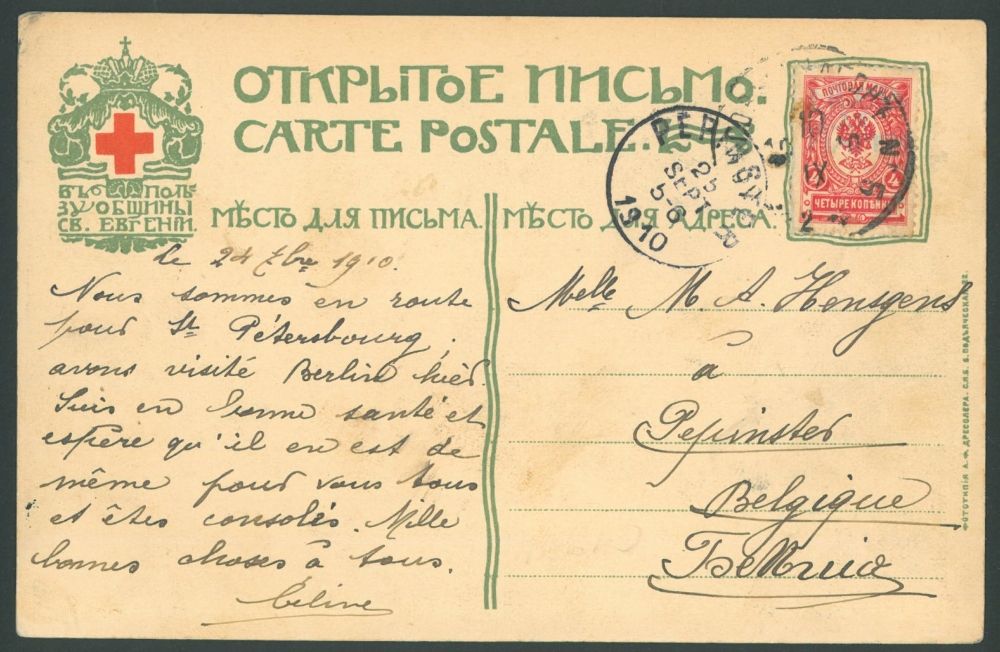 ОТКРЫТОЕ ПИСЬМО.
CARTE POSTALE.
ВЪ ПОЛЬ
ЗУ ОБЩИНЫ
СВ. ЕВГЕНІИ.
МѢСТО ДЛЯ ПИСЬМА.
МѢСТО ДЛЯ АДРЕСА.
ПОЧТОВАЯ МАРКА
4
ЧЕТЫРЕ КОПѢЙКИ
PEPINSTER
25
SEPT
5-6
1910
le 24 7bre 1910.
Nous sommes en route
pour St Pétersbourg,
avons visité Berlin hier.
Suis en bonne santé et
espère qu'il en est de
même pour vous tous
et êtes consolés. Mille
bonnes choses à tous.
Céline
Melle M. A. Hensgens
à
Pepinster
Belgique
ФОТОТИПІЯ А. Ф. ДРЕССЛЕРА. С.П.Б. Б. ПОДЪЯЧЕСКАЯ 22.